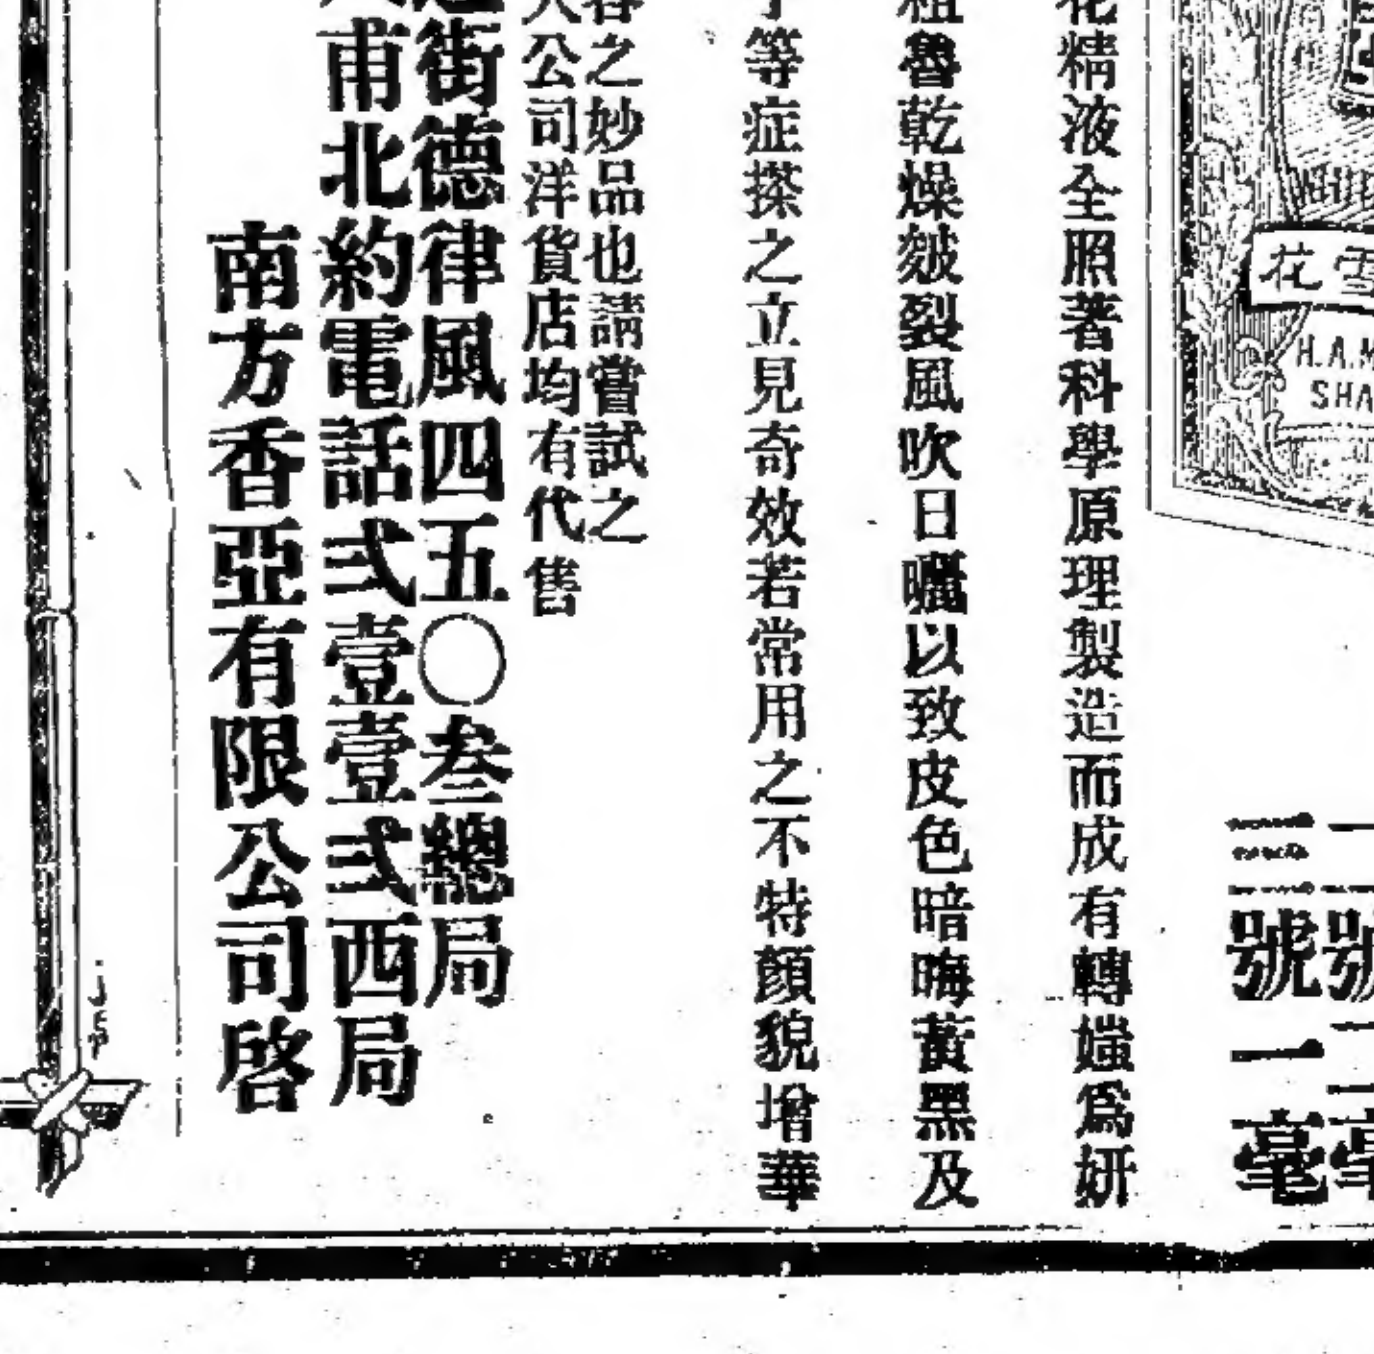 雪花
H.A.M
SHA
一號二毫
三號一毫
花精液全照著科學原理製造而成有轉媸爲妍
粗魯乾燥皴裂風吹日曬以致皮色暗晦黃黑及
等症搽之立見奇效若常用之不特顏貌增華
容之妙品也請嘗試之
公司洋貨店均有代售
街德律風四五〇叁總局
甫北約電話弍壹壹弍西局
南方香亞有限公司啓